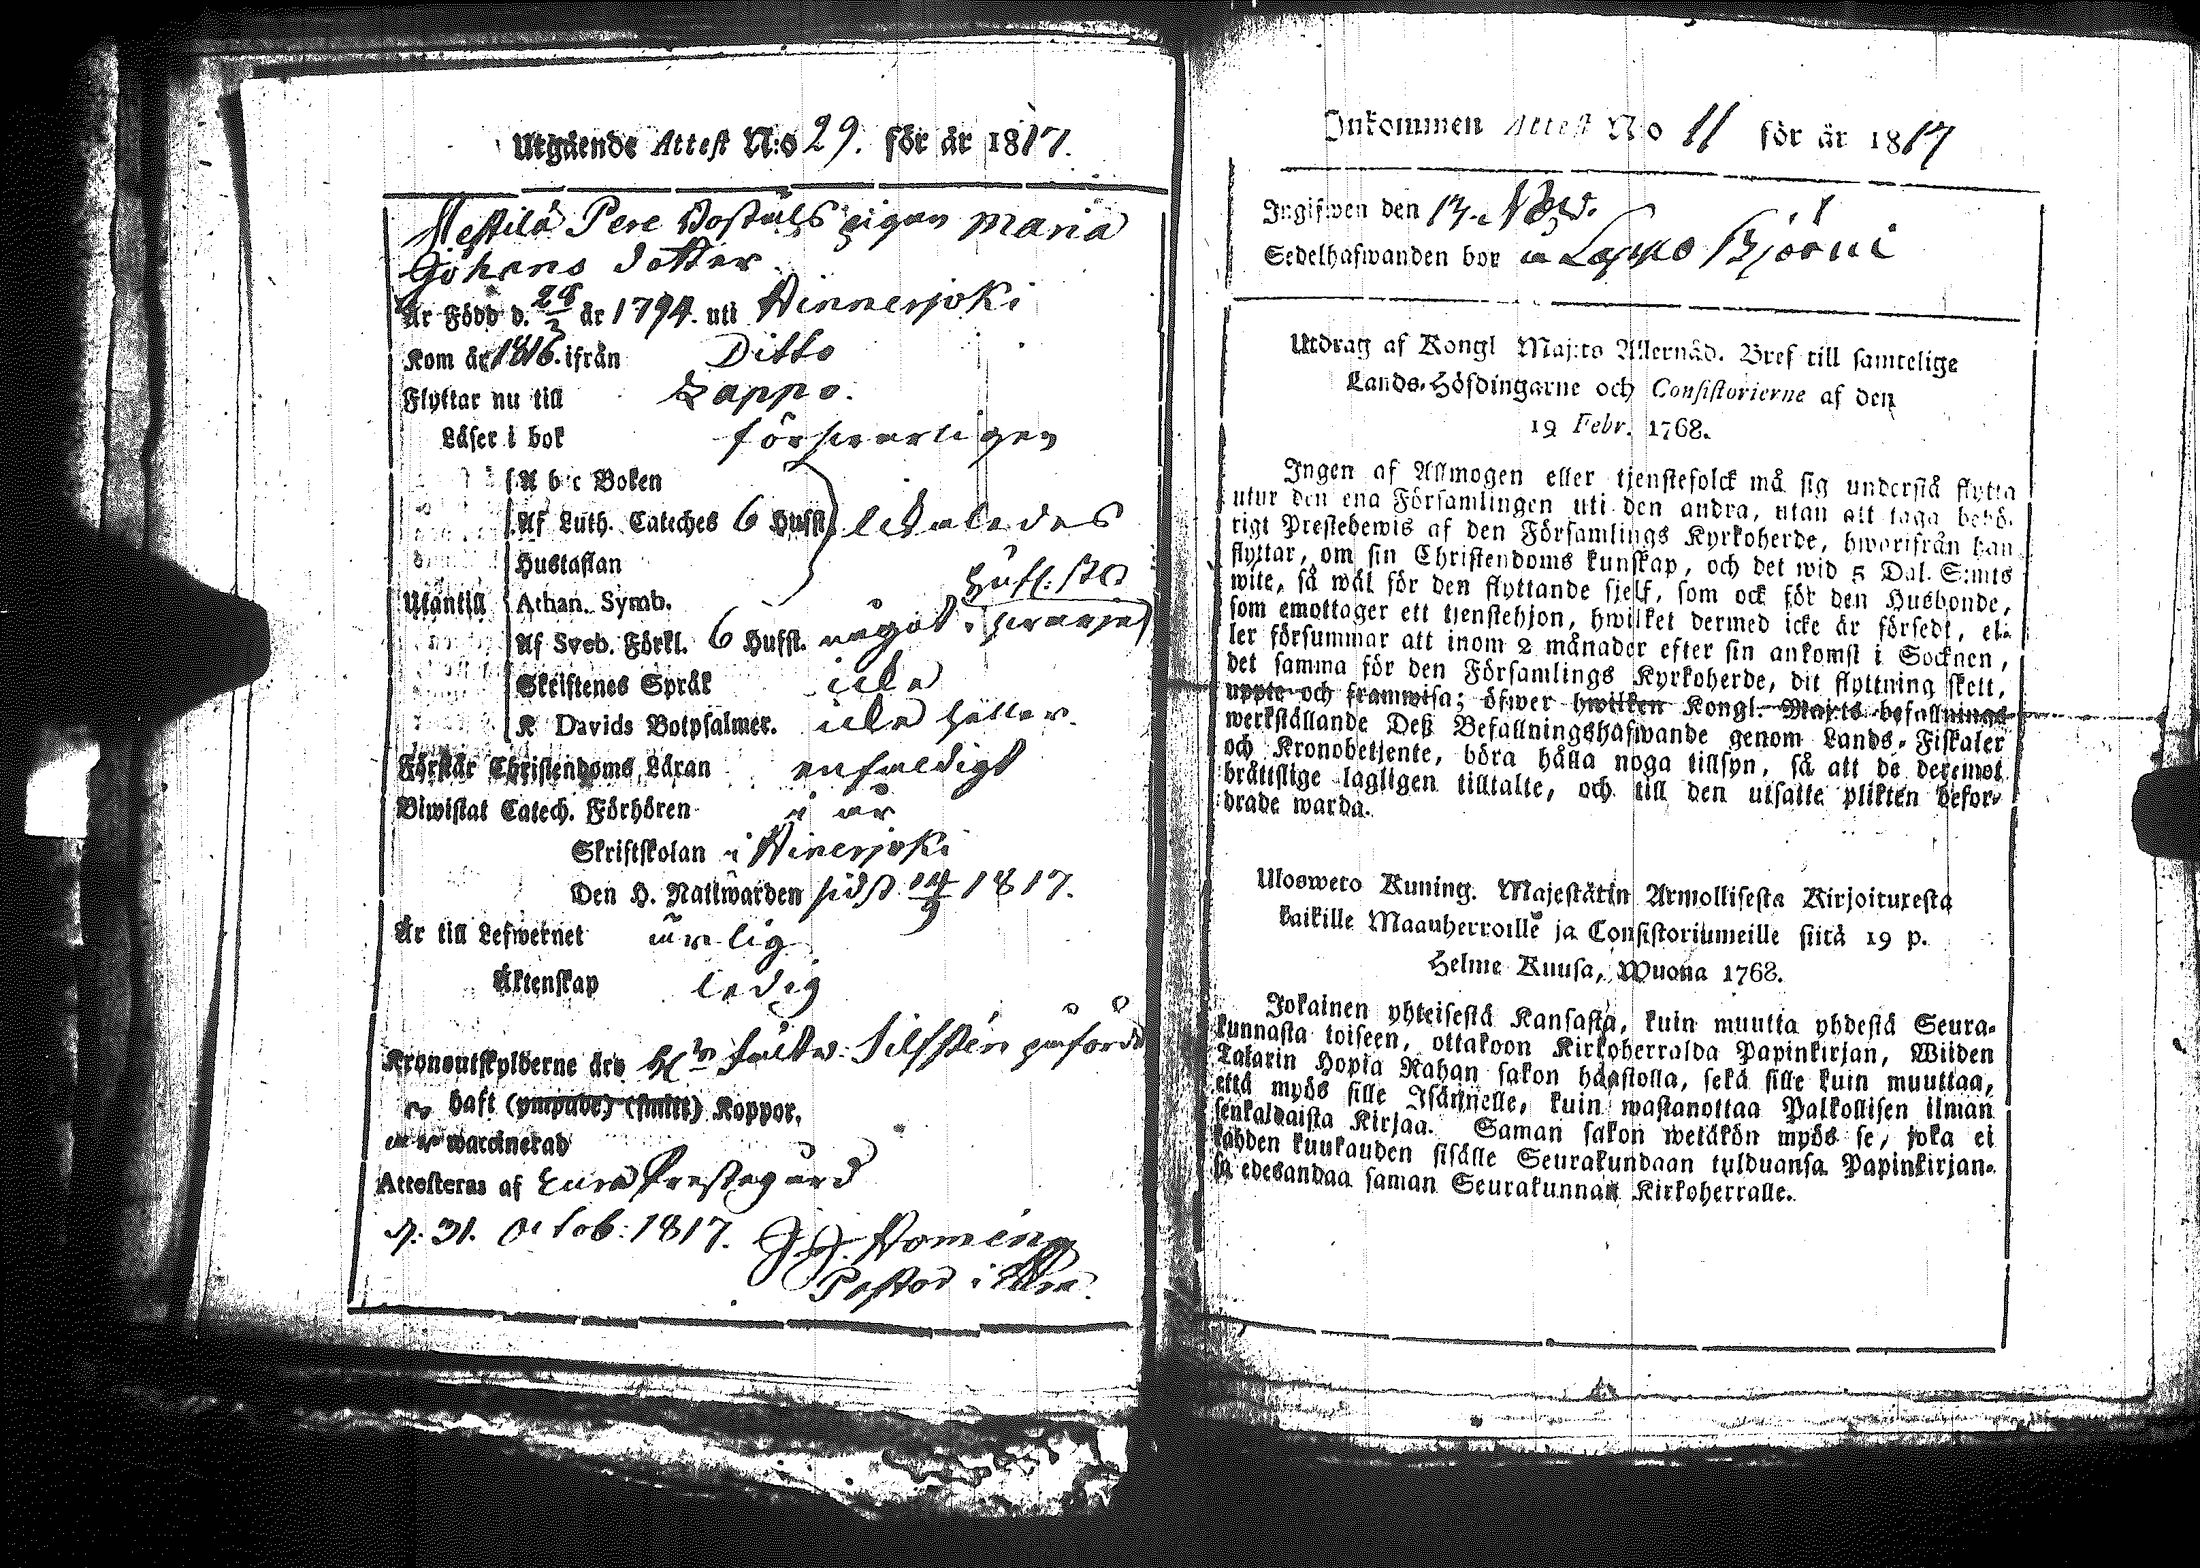 Utgående Attest N:o 29. för år 1817.
Nestilä Pere Bostäls pigan Maria
Johans dotter
Är Född d. 28/3 år 1794. uti Hinnerjoki
Kom år 1816. ifrån Ditto
Flyttar nu till Lappo.
Läser i bok försvarligen
A b c Boken
Af Luth. Cateches 6 Hufst. likaledes
Hustaflan
Utantill Athan. Symb.
Af Sveb. Förkl. 6 Hufst. något
Skriftenes Språk icke
K Davids Botpsalmer. icke heller.
Förstår Christendoms Läran enfaldigt
Biwistat Catech. Förhören i år
Skriftskolan i Hinerjoki
Den H. Nattwarden sidst 14/9 1817.
Är till Lefwernet ärlig
Äktenskap ledig
Kronoutskylderne äro påförde
haft (ympade) (smitt) Koppor.
waccinerad
Attesteras af Eura Prestegård
d. 31. Octob: 1817.
Pastor i Eura.
Inkommen Attest No 11 för år 1817
Ingifwen den 13. Nov.
Sedelhafwanden bor i Lappo Björni
Utdrag af Kongl Maj:ts Allernåd. Bref till samtelige
Lands-Höfdingarne och Consistorierne af den
19 Febr. 1768.
Ingen af Allmogen eller tjenstefolck må sig understå flytta
utur den ena Församlingen uti den andra, utan att taga behö-
rigt Prestebewis af den Församlings Kyrkoherde, hworifrån han
flyttar, om sin Christendoms kunskap, och det wid 5 Dal. S:mts
wite, så wäl för den flyttande sjelf, som ock för den Husbonde,
som emottager ett tjenstehjon, hwilket dermed icke är försedt, el-
ler försummar att inom 2 månader efter sin ankomst i Socknen,
det samma för den Församlings Kyrkoherde, dit flyttning skett,
uppte och framwisa; öfwer hwilken Kongl. Maj:ts befallnings
werkställande Deß Befallningshafwande genom Lands-Fiskaler
och Kronobetjente, böra hålla noga tillsyn, så att de deremot
bråttslige lagligen tilltalte, och till den utsatte plikten befor-
drade warda.
Ulosweto Kuning. Majestätin Armollisesta Kirjoituxesta
kaikille Maauherroille ja Consistoriumeille siitä 19 p.
Helme Kuusa, Wuona 1768.
Jokainen yhteisestä Kansasta, kuin muutta yhdestä Seura-
kunnasta toiseen, ottakoon Kirkoherralda Papinkirjan, Wiiden
Talarin Hopia Rahan sakon haastolla, sekä sille kuin muuttaa,
että myös sille Isännelle, kuin wastanottaa Palkollisen ilman
senkaldaista Kirjaa. Saman sakon wetäkön myös se, joka ei
kahden kuukauden sisälle Seurakundaan tulduansa Papinkirjan-
sa edesandaa saman Seurakunnan Kirkoherralle.